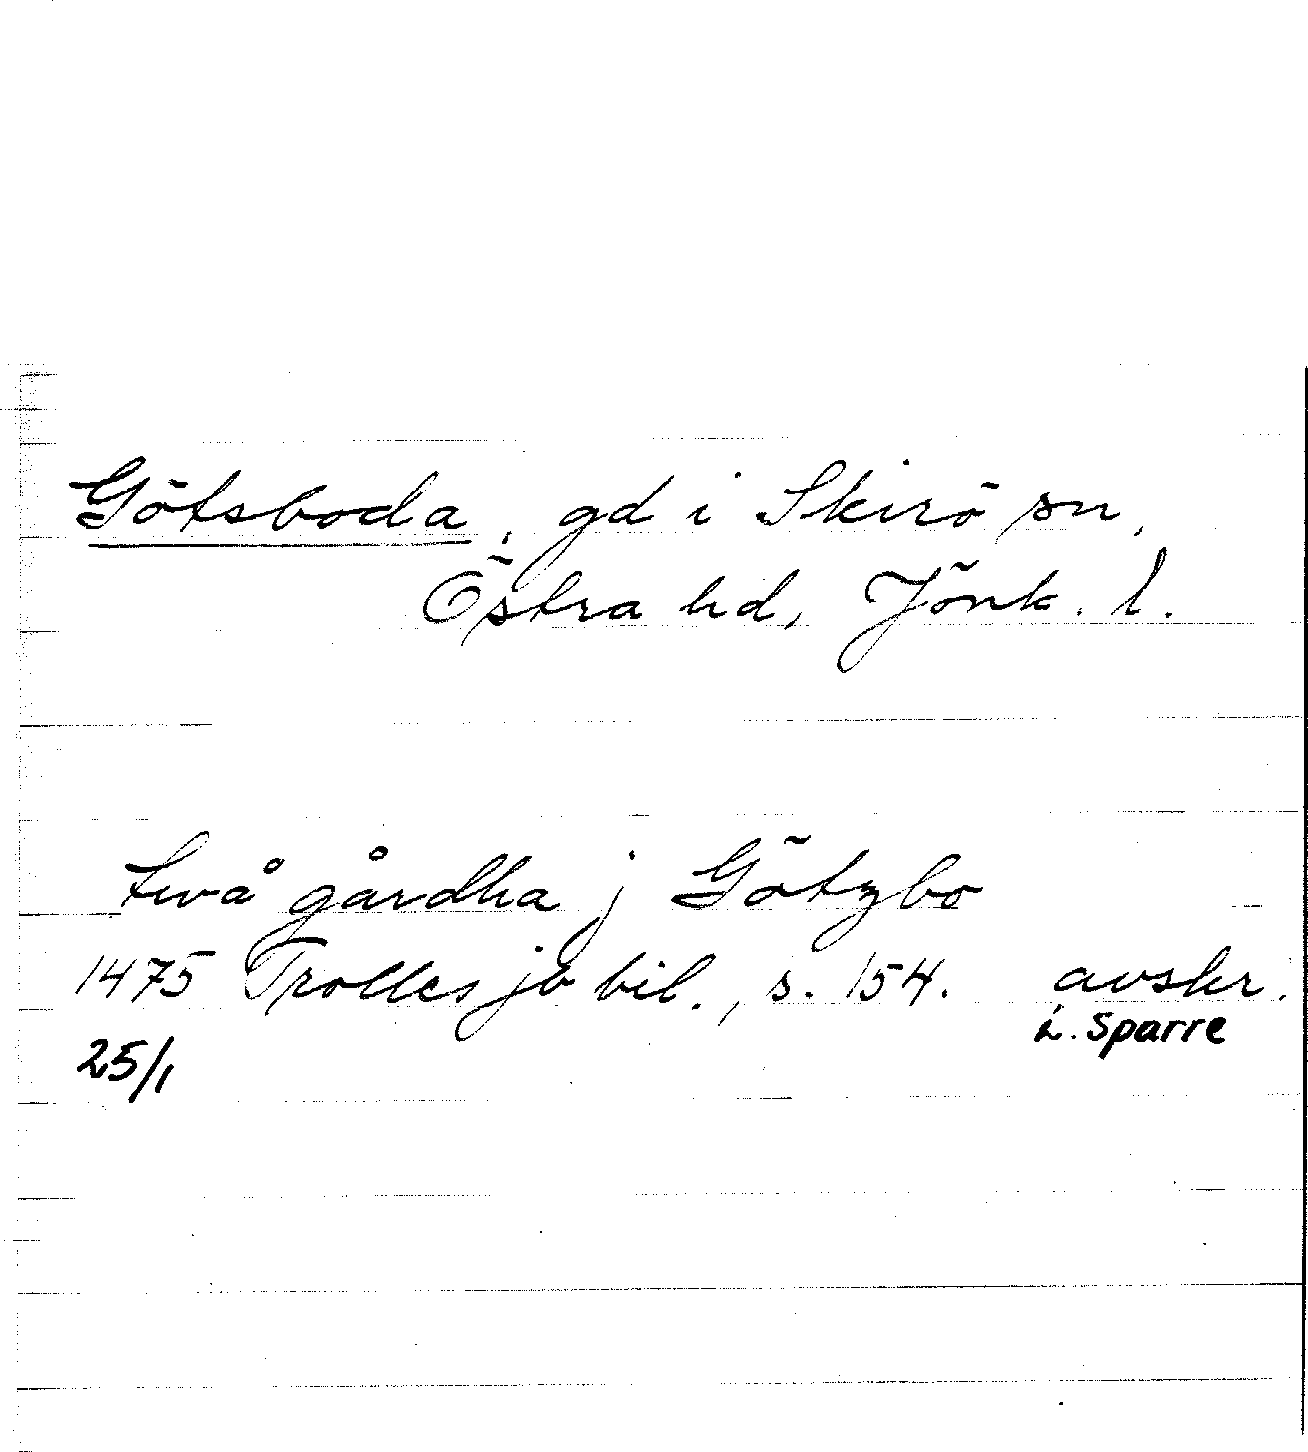 Götsboda, gd i Skirö sn,
Östra hd, Jönk. l.
twå gårdha j Götzbo
1475 Trolles jb bil., s. 154. avskr.
i. Sparre
25/1